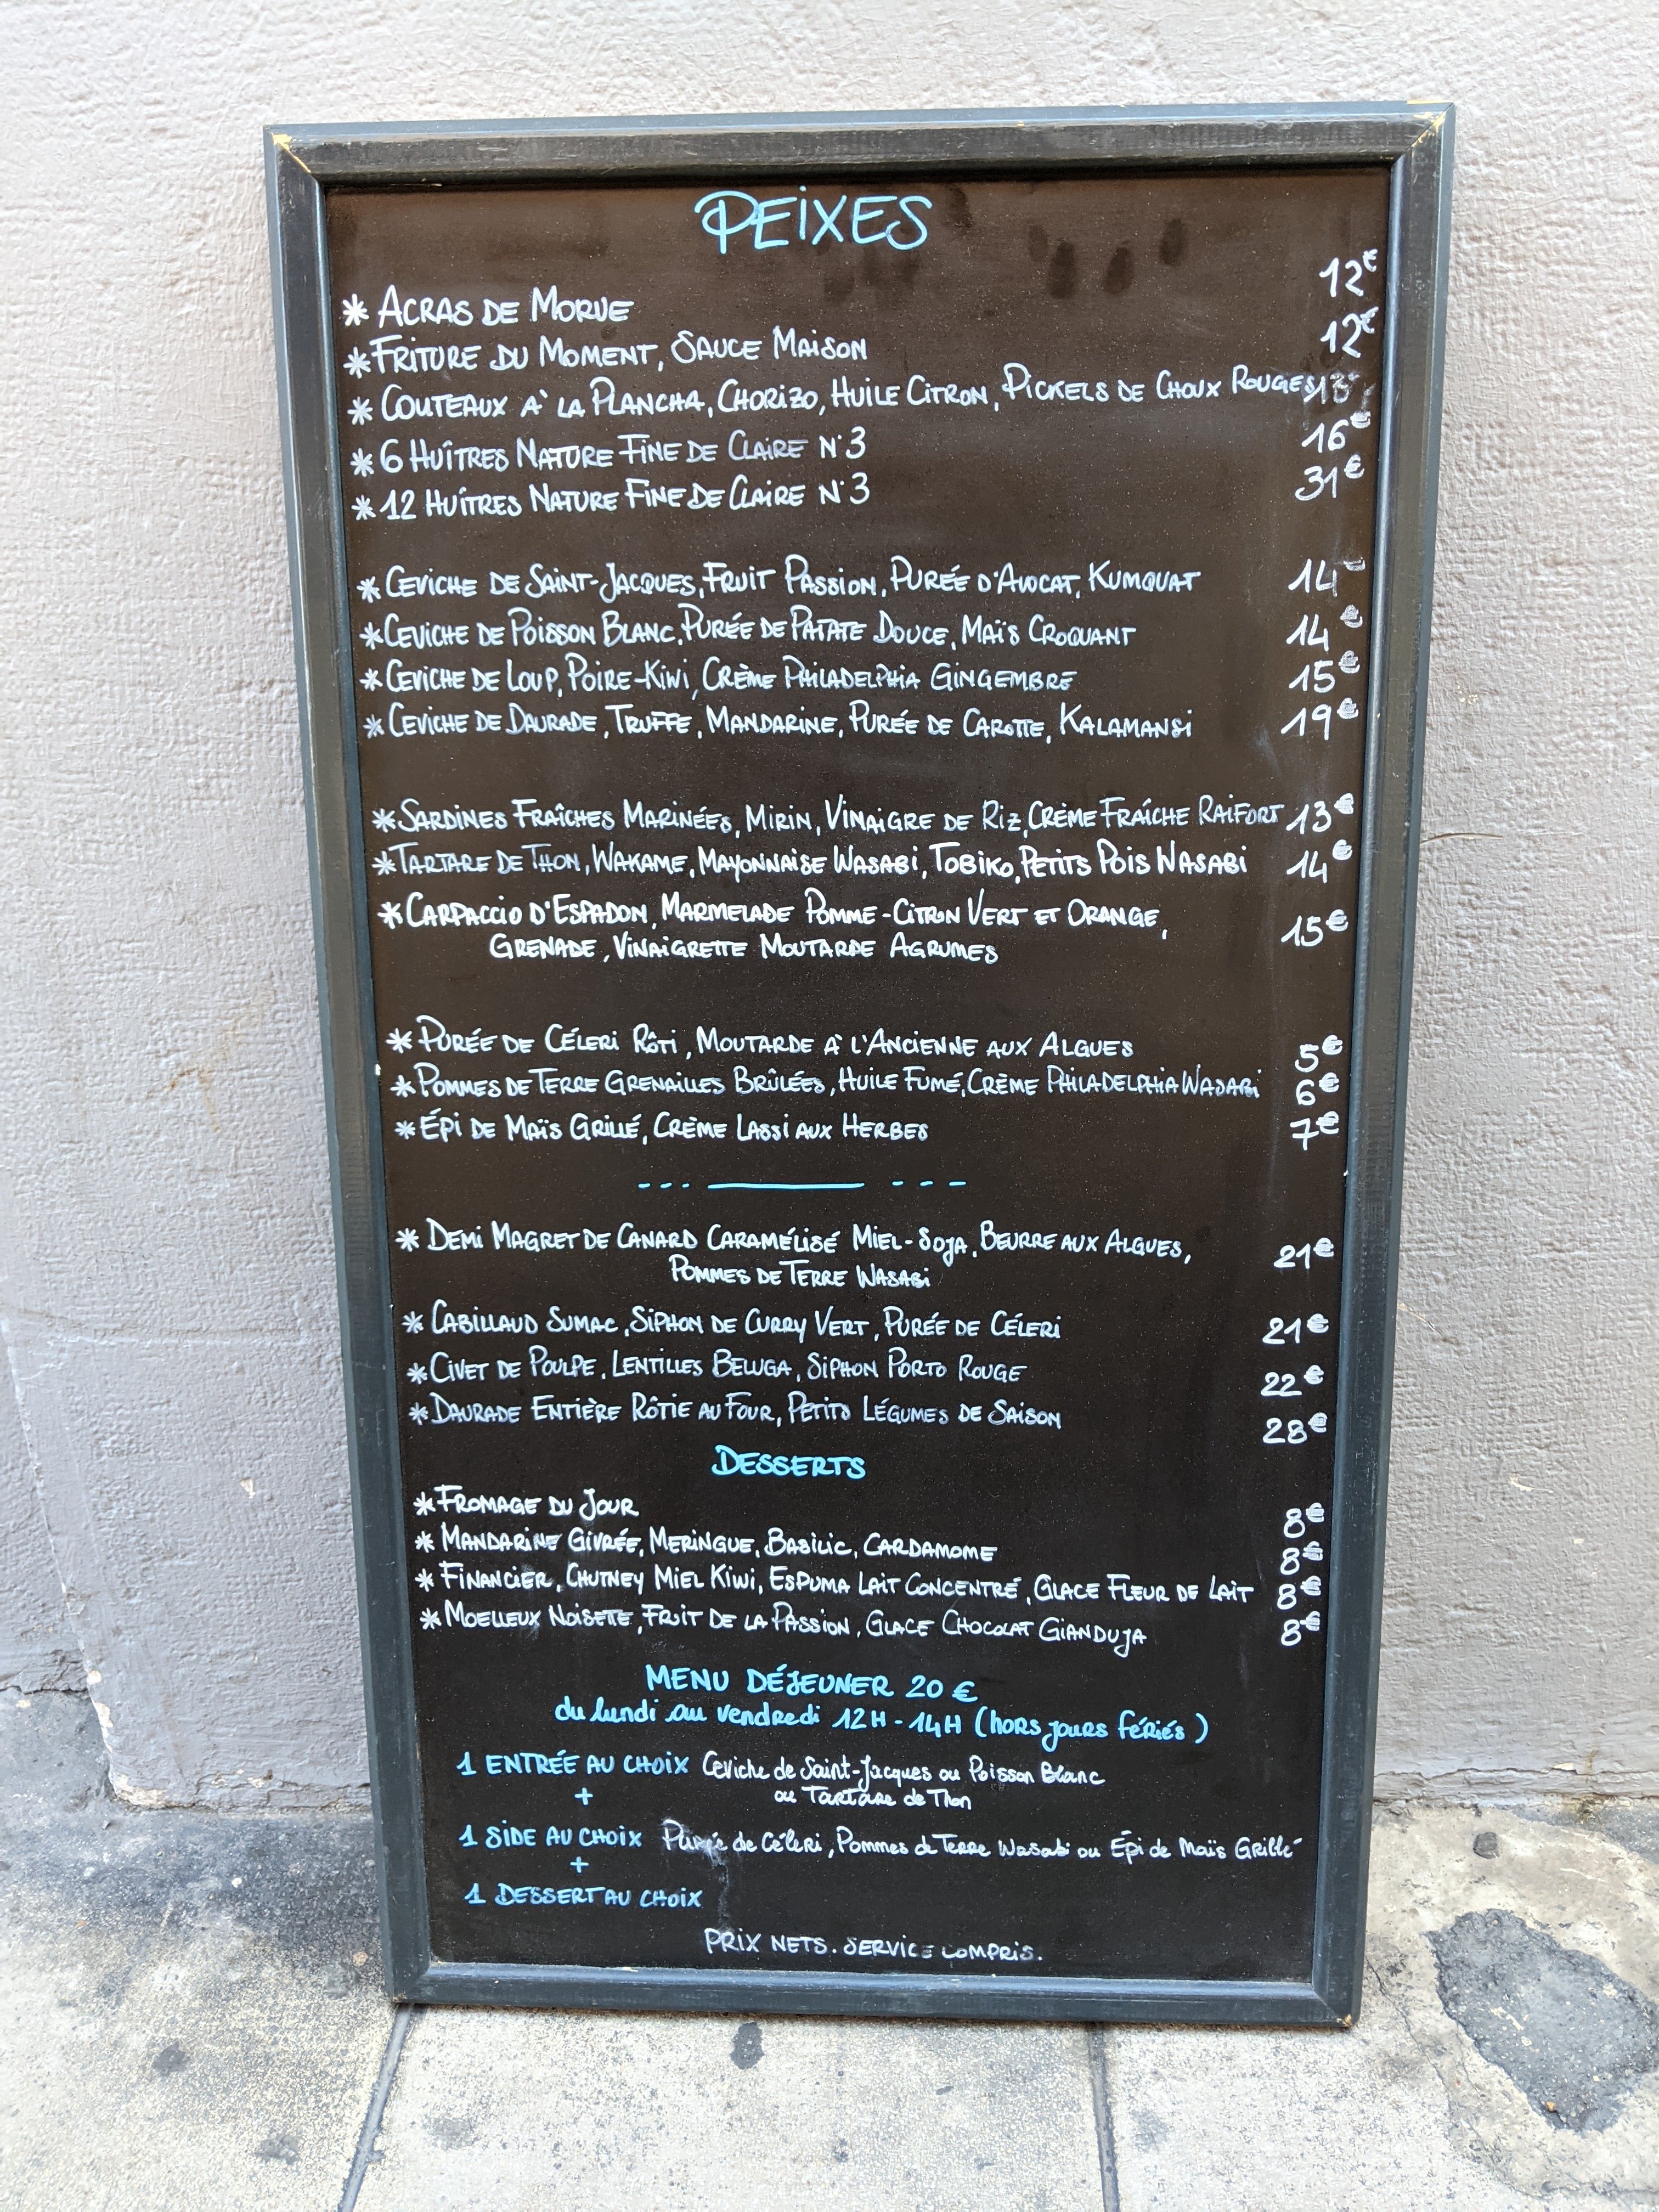 PEIXES
* ACRAS DE MORUE 12€
* FRITURE DU MOMENT, SAUCE MAISON 12€
* COUTEAUX À LA PLANCHA, CHORIZO, HUILE CITRON, PICKELS DE CHOUX ROUGES
* 6 HUÎTRES NATURE FINE DE CLAIRE N°3 16€
* 12 HUÎTRES NATURE FINE DE CLAIRE N°3 31€
* CEVICHE DE SAINT-JACQUES, FRUIT PASSION, PURÉE D'AVOCAT, KUMQUAT 14
* CEVICHE DE POISSON BLANC, PURÉE DE PATATE DOUCE, MAÏS CROQUANT 14€
* CEVICHE DE LOUP, POIRE-KIWI, CRÈME PHILADELPHIA GINGEMBRE 15€
* CEVICHE DE DAURADE, TRUFFE, MANDARINE, PURÉE DE CAROTTE, KALAMANSI 19€
* SARDINES FRAÎCHES MARINÉES, MIRIN, VINAIGRE DE RIZ, CRÈME FRAÎCHE RAIFORT 13€
* TARTARE DE THON, WAKAME, MAYONNAISE WASABI, TOBIKO, PETITS POIS WASABI 14€
* CARPACCIO D'ESPADON, MARMELADE POMME-CITRON VERT ET ORANGE, 15€
GRENADE, VINAIGRETTE MOUTARDE AGRUMES
* PURÉE DE CÉLERI RÔTI, MOUTARDE À L'ANCIENNE AUX ALGUES 5€
* POMMES DE TERRE GRENAILLES BRÛLÉES, HUILE FUMÉ, CRÈME PHILADELPHIA WASABI 6€
* ÉPI DE MAÏS GRILLÉ, CRÈME LASSI AUX HERBES 7€
* DEMI MAGRET DE CANARD CARAMÉLISÉ MIEL-SOJA, BEURRE AUX ALGUES, 21€
POMMES DE TERRE WASABI
* CABILLAUD SUMAC, SIPHON DE CURRY VERT, PURÉE DE CÉLERI 21€
* CIVET DE POULPE, LENTILLES BELUGA, SIPHON PORTO ROUGE 22€
* DAURADE ENTIÈRE RÔTIE AU FOUR, PETITS LÉGUMES DE SAISON 28€
DESSERTS
* FROMAGE DU JOUR 8€
* MANDARINE GIVRÉE, MERINGUE, BASILIC, CARDAMOME 8€
* FINANCIER, CHUTNEY MIEL KIWI, ESPUMA LAIT CONCENTRÉ, GLACE FLEUR DE LAIT 8€
* MOELLEUX NOISETTE, FRUIT DE LA PASSION, GLACE CHOCOLAT GIANDUJA 8€
MENU DÉJEUNER 20 €
du lundi au vendredi 12H-14H (hors jours fériés)
1 ENTRÉE AU CHOIX Ceviche de Saint-Jacques ou Poisson Blanc
+ ou Tartare de Thon
1 SIDE AU CHOIX Purée de Céleri, Pommes de Terre Wasabi ou Épi de Maïs Grillé
+
1 DESSERT AU CHOIX
PRIX NETS. SERVICE COMPRIS.